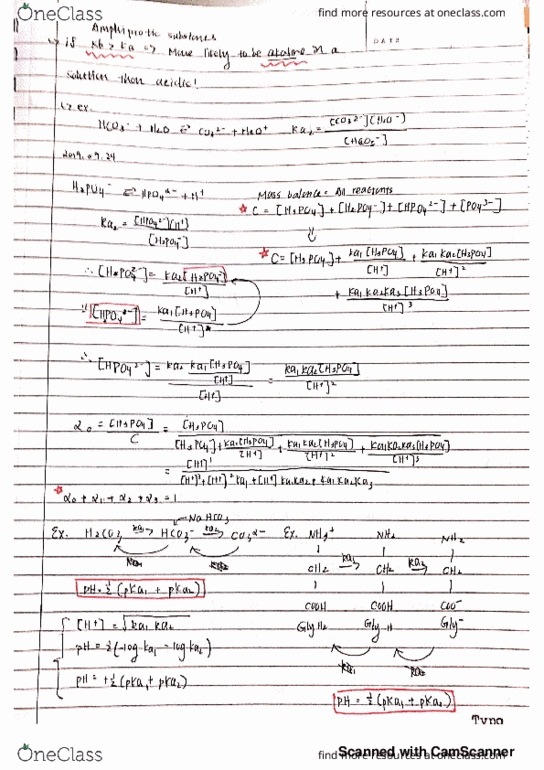 OneClass
find more resources at oneclass.com
Amphiprotic substances
DATE
↳ if Kb > Ka => More likely to be alkaline in a
solution than acidic!
↳ ex.
HCO₃⁻ + H₂O ⇌ CO₃²⁻ + H₃O⁺ Ka₂ = [CO₃²⁻][H₃O⁺] / [HCO₃⁻]
2019.09.24
H₂PO₄⁻ ⇌ HPO₄²⁻ + H⁺
Mass balance = All reactants
* C = [H₃PO₄] + [H₂PO₄⁻] + [HPO₄²⁻] + [PO₄³⁻]
Ka₂ = [HPO₄²⁻][H⁺] / [H₂PO₄⁻]
* C = [H₃PO₄] + Ka₁[H₃PO₄] / [H⁺] + Ka₁Ka₂[H₃PO₄] / [H⁺]²
+ Ka₁Ka₂Ka₃[H₃PO₄] / [H⁺]³
∴ [HPO₄²⁻] = Ka₂[H₂PO₄⁻] / [H⁺]
= Ka₁[H₃PO₄] / [H⁺]
∴ [HPO₄²⁻] = Ka₂ Ka₁[H₃PO₄] / [H⁺] / [H⁺] = Ka₁Ka₂[H₃PO₄] / [H⁺]²
α₀ = [H₃PO₄] / C = [H₃PO₄] / [H₃PO₄] + Ka₁[H₃PO₄] / [H⁺] + Ka₁Ka₂[H₃PO₄] / [H⁺]² + Ka₁Ka₂Ka₃[H₃PO₄] / [H⁺]³
= [H⁺]³ / [H⁺]³ + [H⁺]²Ka₁ + [H⁺]Ka₁Ka₂ + Ka₁Ka₂Ka₃
* α₀ + α₁ + α₂ + α₃ = 1
NaHCO₃
Ex. H₂CO₃ Ka₁ HCO₃⁻ Ka₂ CO₃²⁻
Ex. NH₃⁺ NH₂ NH₂
CH₂ Ka₁ CH₂ Ka₂ CH₂
pH = ½ (pKa₁ + pKa₂)
COOH COOH COO⁻
[H⁺] = √Ka₁ Ka₂
GlyH₂ Gly-H Gly⁻
pH = ½(-log Ka₁ - log Ka₂)
pH = +½ (pKa₁ + pKa₂)
pH = ½ (pKa₁ + pKa₂)
OneClass
find more resources at oneclass.com
Scanned with CamScanner